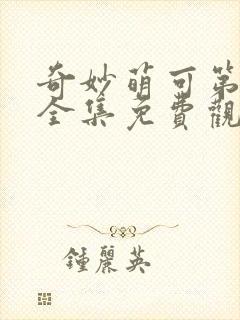 奇妙萌可第
全集免費觀
鍾麗英